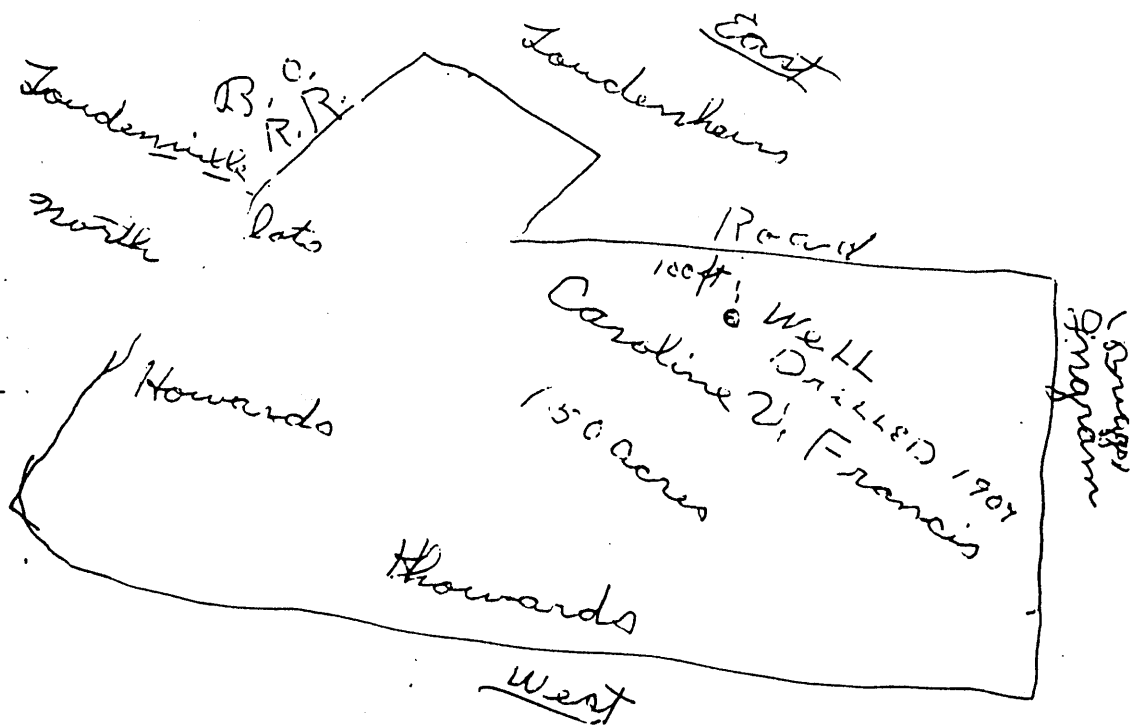 East
Loudenheurs
B. O.
R. R.
Loudenville
lots
North
Road
100ft
Well
Drilled 1904
Caroline V. Francis
150 acres
Ingram
Howards
Howards
West